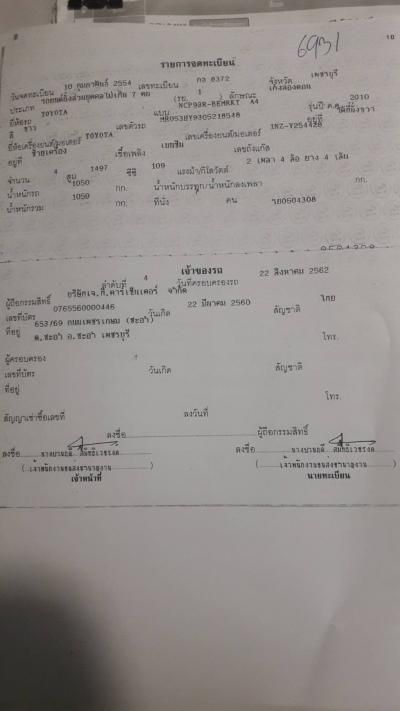 6931
10
รายการจดทะเบียน
วันจดทะเบียน 10 กุมภาพันธ์ 2554 เลขทะเบียน กอ 8372 จังหวัด เพชรบุรี
ประเภท รถยนต์นั่งส่วนบุคคลไม่เกิน 7 คน (รย. 1 ) ลักษณะ เก๋งสองตอน
ยี่ห้อรถ TOYOTA แบบ NCP93R-BEMRKT A4 รุ่นปี ค.ศ. 2010
สี ขาว เลขตัวรถ MR053BY9305218548 อยู่ที่
ยี่ห้อเครื่องยนต์/มอเตอร์ TOYOTA เลขเครื่องยนต์/มอเตอร์ 1NZ-Y254426
อยู่ที่ ซ้ายเครื่อง เชื้อเพลิง เบนซิน เลขถังแก๊ส
จำนวน 4 สูบ 1497 ซีซี 109 แรงม้า/กิโลวัตต์ 2 เพลา 4 ล้อ ยาง 4 เส้น
น้ำหนักรถ 1050 กก. น้ำหนักบรรทุก/น้ำหนักลงเพลา กก.
น้ำหนักรวม 1050 กก. ที่นั่ง คน
เจ้าของรถ
ลำดับที่ 4 วันที่ครอบครองรถ 22 สิงหาคม 2562
ผู้ถือกรรมสิทธิ์ บริษัทเจ.ที.คาร์เซ็นเตอร์ จำกัด
เลขที่บัตร 0765560000446 วันเกิด 22 มีนาคม 2560 สัญชาติ ไทย
ที่อยู่ 653/69 ถนนเพชรเกษม (ชะอำ)
ต.ชะอำ อ.ชะอำ เพชรบุรี โทร.
ผู้ครอบครอง
เลขที่บัตร วันเกิด สัญชาติ
ที่อยู่
โทร.
สัญญาเช่าซื้อเลขที่ ลงวันที่
ลงชื่อ ผู้ถือกรรมสิทธิ์
ลงชื่อ ลงชื่อ
(เจ้าพนักงานขนส่งชำนาญงาน) (เจ้าพนักงานขนส่งชำนาญงาน)
เจ้าหน้าที่ นายทะเบียน